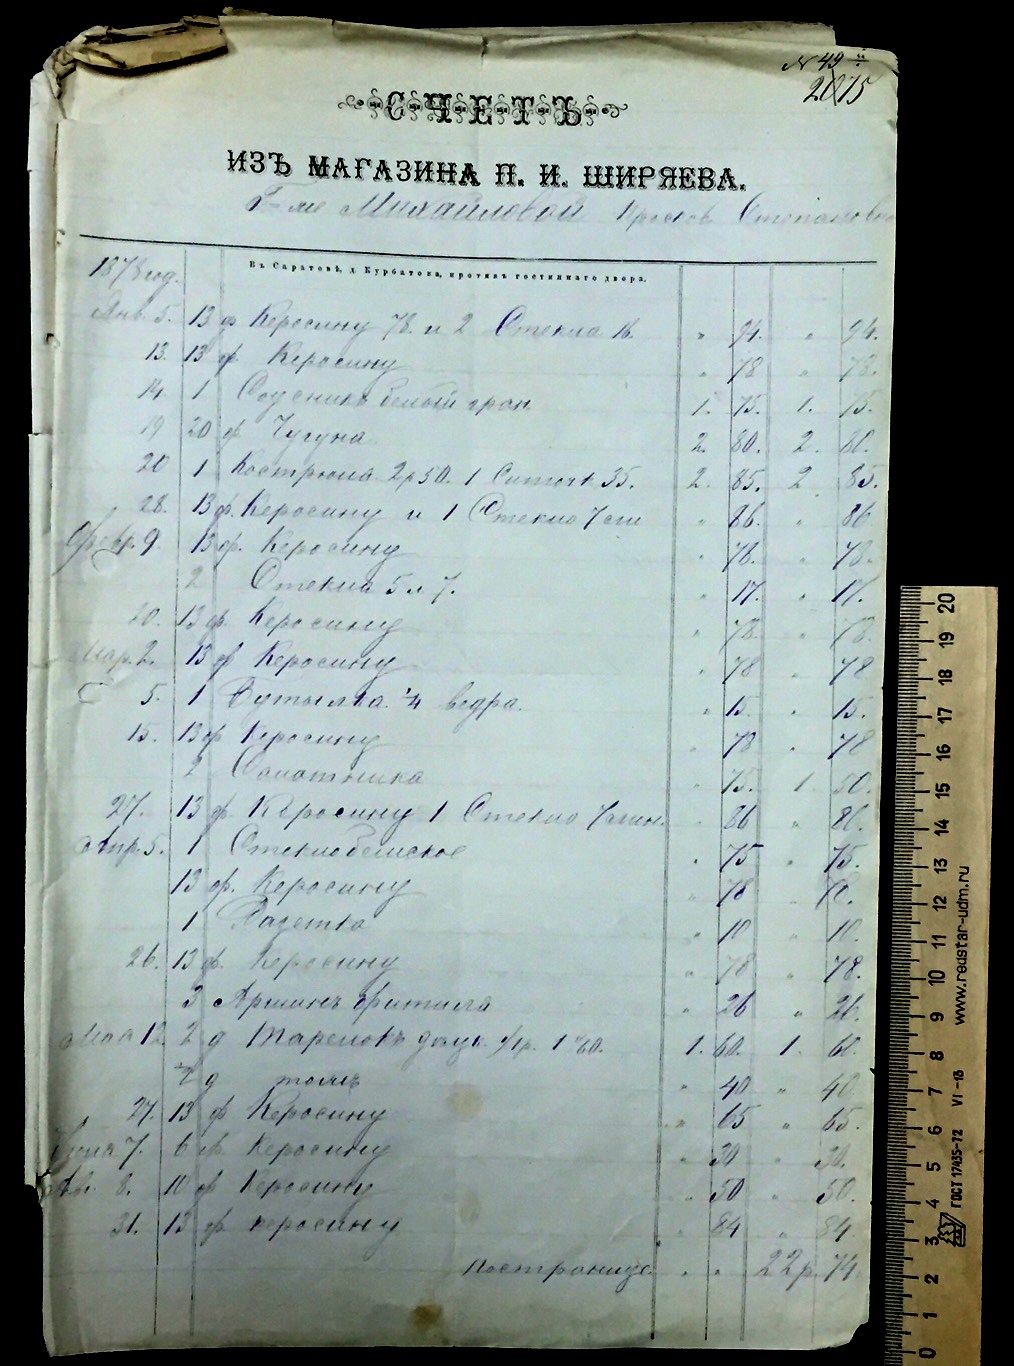 № 49
2075
СЧЕТЪ
ИЗЪ МАГАЗИНА П. И. ШИРЯЕВА.
Г-же Михайловой Степановне
Въ Саратовѣ, д. Курбатова, противъ гостиннаго двора.
1878 год.
Янв. 5. 13 ф Керосину 78. и 2 Стекла 16. " 94. " 94.
13. 13 ф Керосину " 78 " 78.
14. 1 Соусникъ белый гран 1. 75. 1. 75.
19 20 ф Чугуна 2. 80. 2. 80.
20 1 Кострюла 2р50. 1 35. 2. 85. 2. 85.
28. 13 ф. Керосину и 1 Стекло 7 " 86. " 86
Февр. 9. 13 ф. Керосину " 78. " 78.
2 Стекла 5 и 7. " 17. " 17.
20. 13 ф. Керосину " 78. " 78.
Мар. 2. 13 ф Керосину " 78 " 78
5. 1 Бутылка 1/4 ведра. " 15. " 15.
15. 13 ф Керосину " 78 " 78
2 " 75. 1. 50.
27. 13 ф Керосину 1 Стекло 7 лин. " 86 " 86.
Апр. 5. 1 Стекло " 75 " 75.
13 ф. Керосину " 78 " 78.
1 Розетка " 10 " 10.
26. 13 ф. Керосину " 78 " 78.
3 Аршинъ фитиля " 26 " 26.
Мая 12 2 д Тарелокъ 1 60. 1. 60. 1. 60.
д тоже " 40 " 40
27. 13 ф Керосину " 65 " 65.
Июня 7. 6 ф. Керосину " 30 " 30.
8. 10 ф Керосину " 50 " 50.
31. 13 ф керосину " 84 " 84.
Постранице. " " 22р. 74.
0 1 2 3 4 5 6 7 8 9 10 11 12 13 14 15 16 17 18 19 20
ГОСТ 17435-72 VI-13 www.redstar-udm.ru